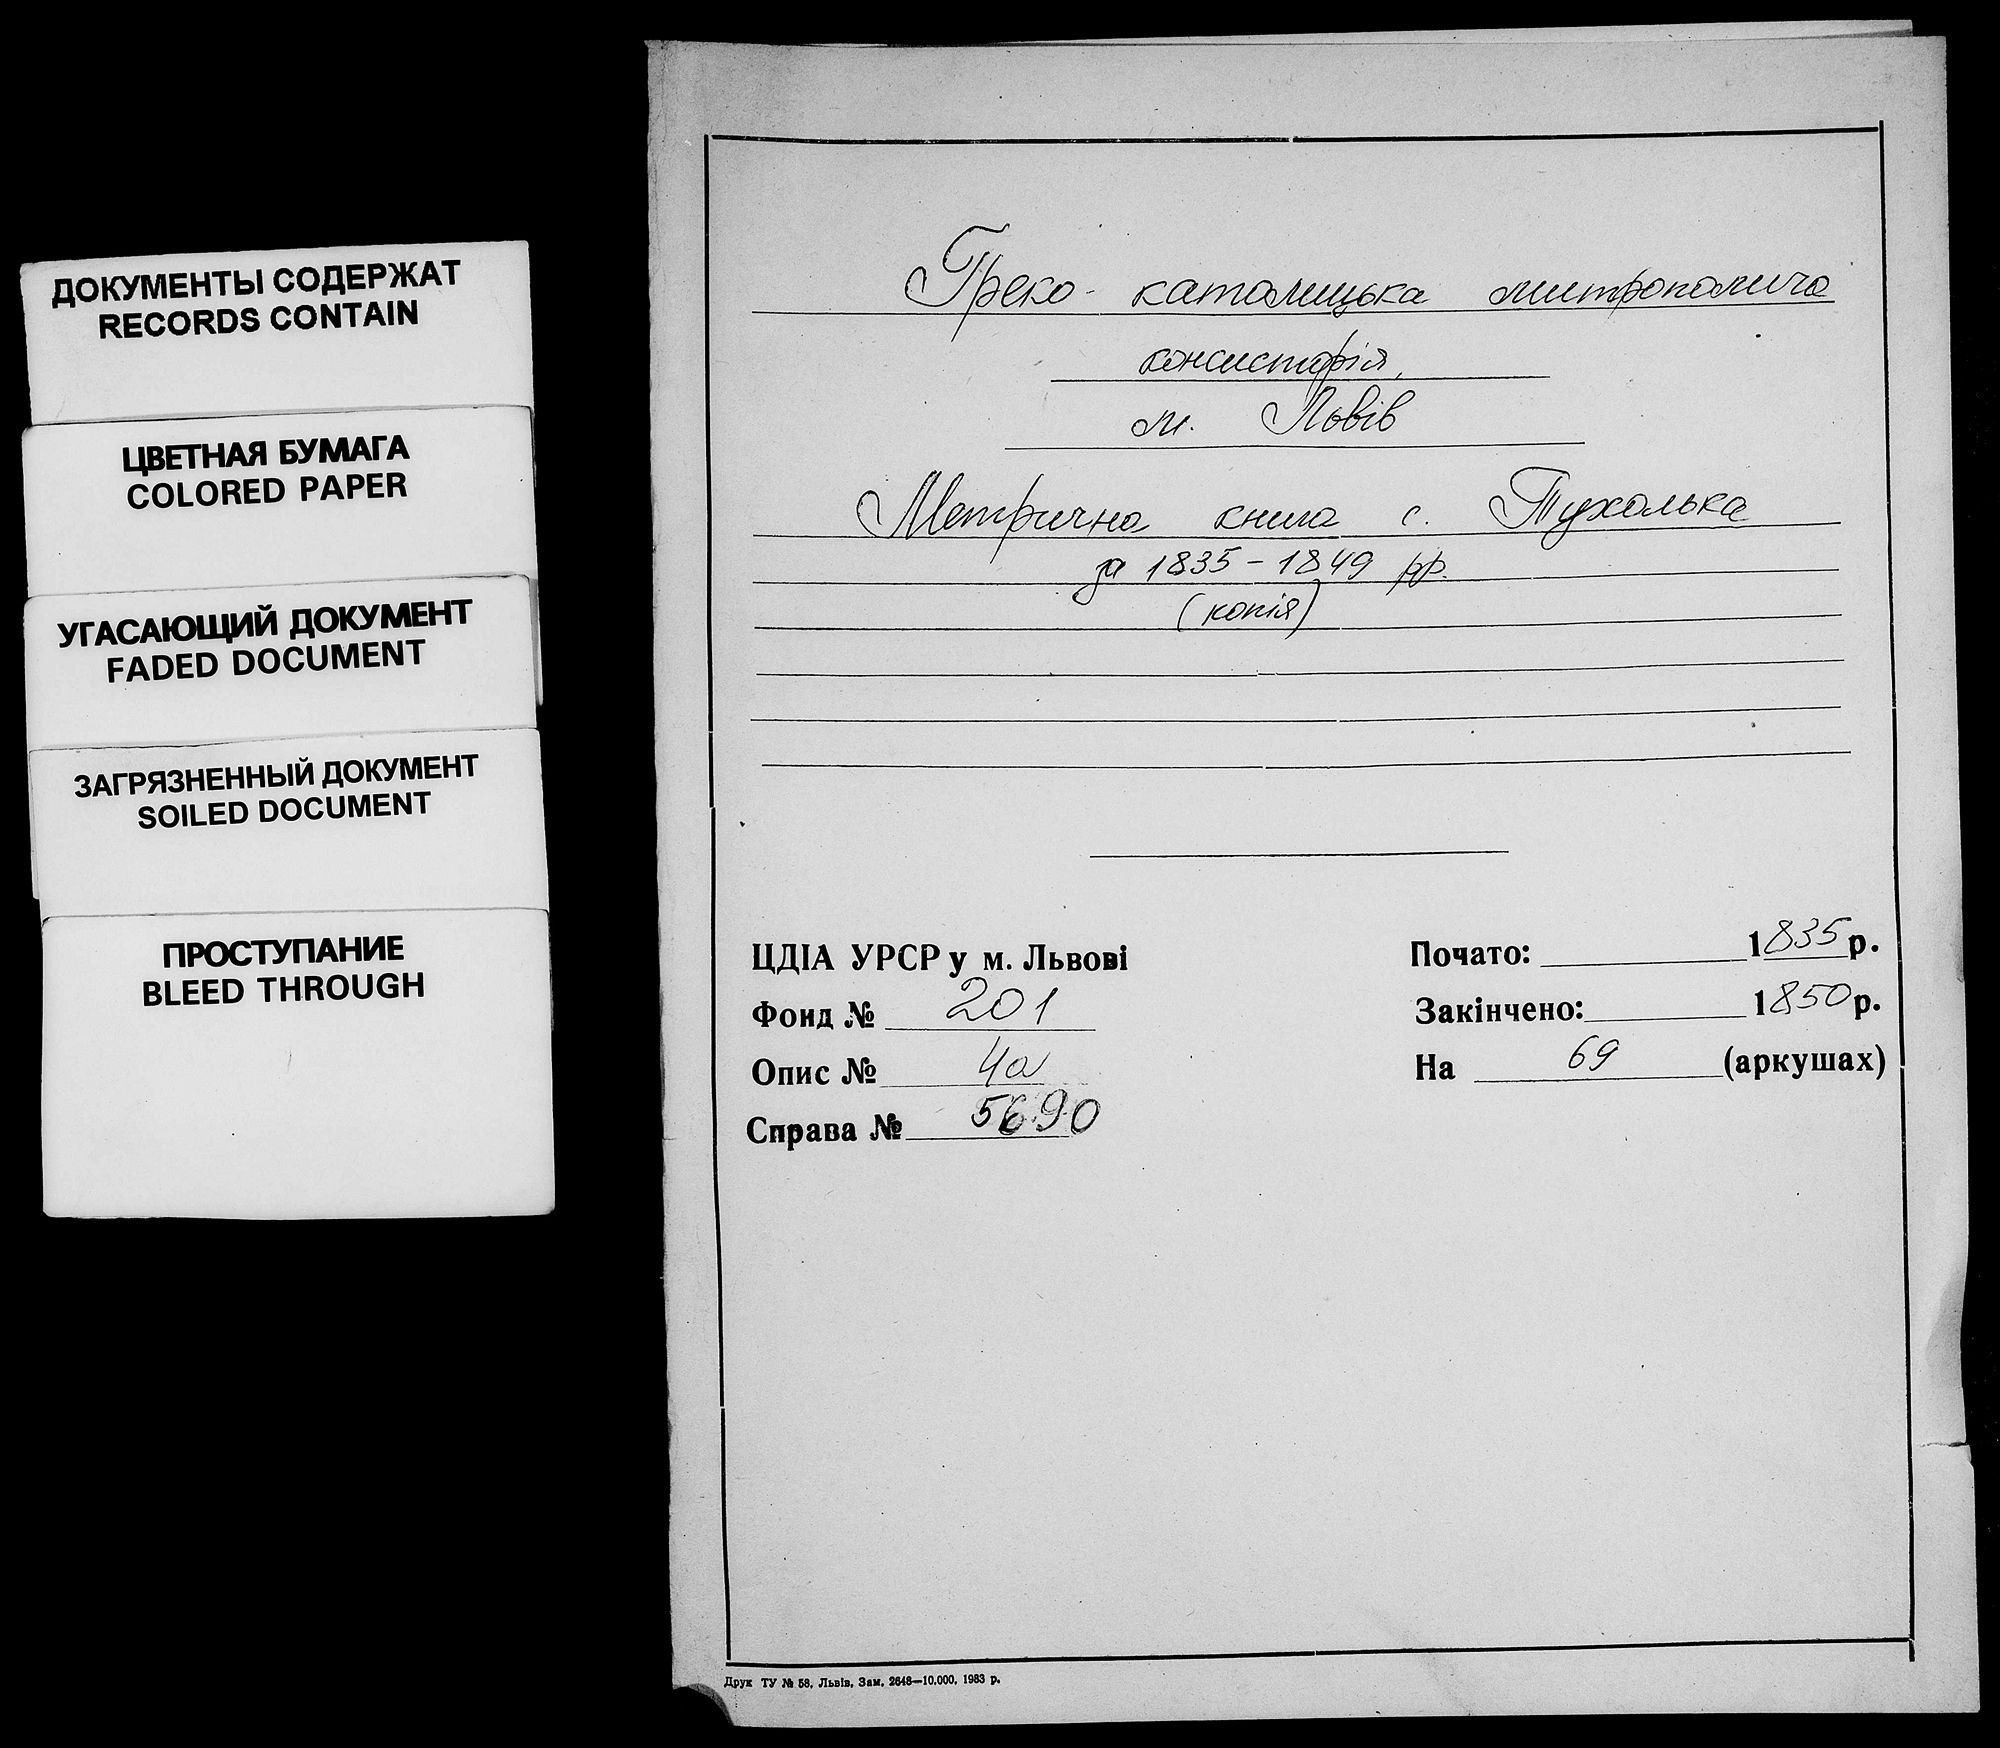 ДОКУМЕНТЫ СОДЕРЖАТ
RECORDS CONTAIN
ЦВЕТНАЯ БУМАГА
COLORED PAPER
УГАСАЮЩИЙ ДОКУМЕНТ
FADED DOCUMENT
ЗАГРЯЗНЕННЫЙ ДОКУМЕНТ
SOILED DOCUMENT
ПРОСТУПАНИЕ
BLEED THROUGH
Греко-католицька митрополича
консисторія,
м. Львів
Метрична книга с. Тухолька
за 1835-1849 рр.
(копія)
ЦДІА УРСР у м. Львові
Фонд № 201
Опис № 4а
Справа № 5690
Почато: 1835 р.
Закінчено: 1850 р.
На 69 (аркушах)
Друк ТУ № 58, Львів, Зам. 2648—10.000, 1983 р.